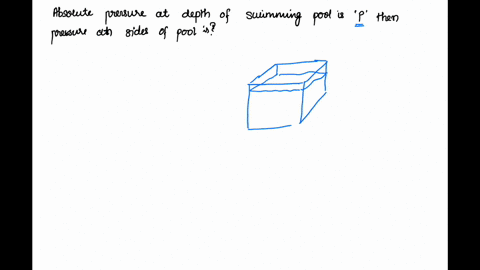 Absolute pressure at depth of swimming pool is 'P' then
pressure at sides of pool is?